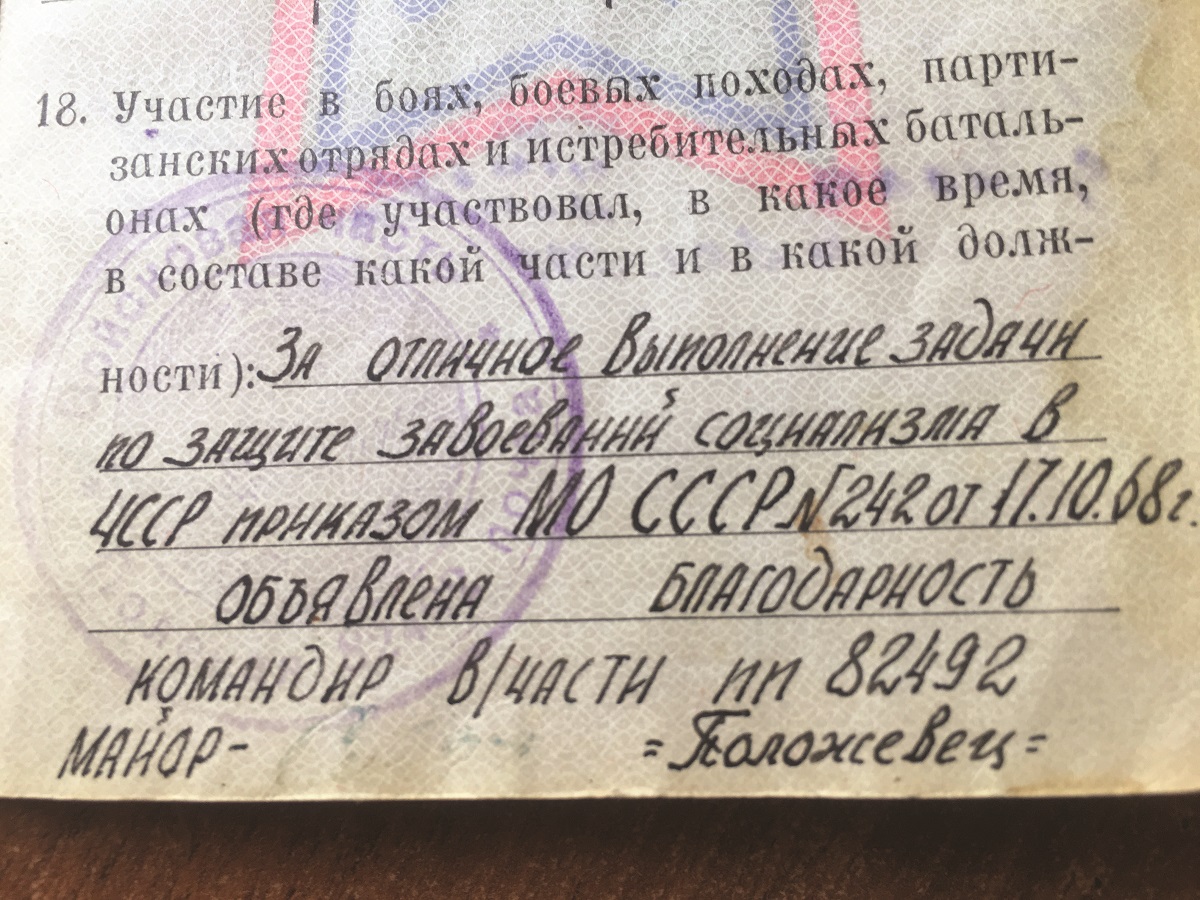 18. Участие в боях, боевых походах, парти-
занских отрядах и истребительных баталь-
онах (где участвовал, в какое время,
в составе какой части и в какой долж-
ности): За отличное выполнение задачи
по защите завоеваний социализма в
ЧССР приказом МО СССР N242 от 17.10.68г.
объявлена благодарность
командир в/части пп 82492
майор- =Положевец=